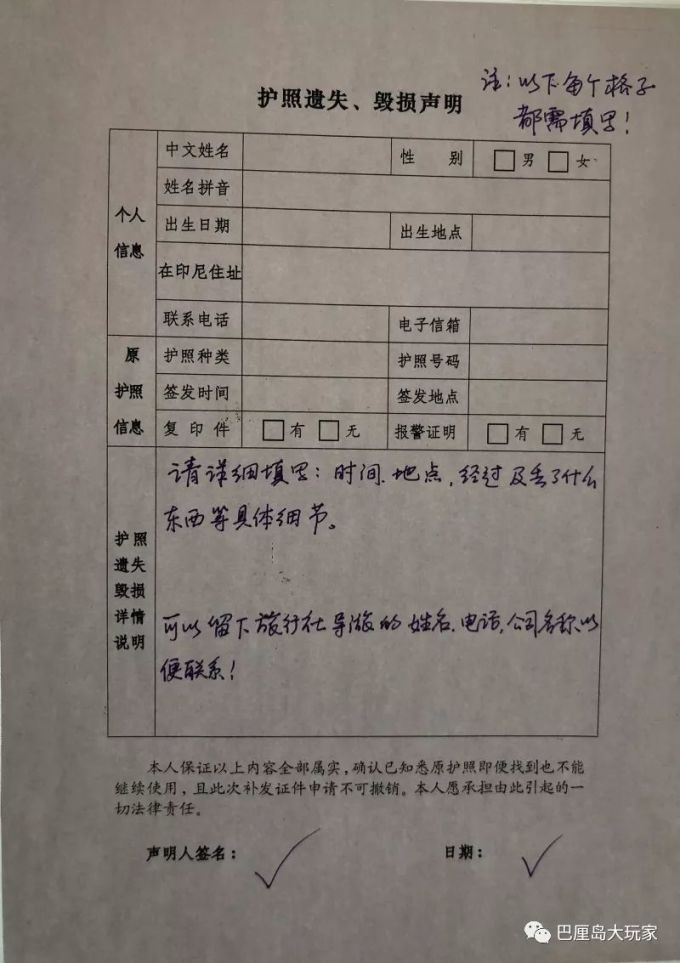 注:以下每个格子
都需填写!
护照遗失、毁损声明
个人
信息
中文姓名
性 别
男
女
姓名拼音
出生日期
出生地点
在印尼住址
联系电话
电子信箱
原
护照
信息
护照种类
护照号码
签发时间
签发地点
复印件
有
无
报警证明
有
无
护照
遗失
毁损
详情
说明
请详细填写:时间、地点,经过及丢了什么
东西等具体细节。
可以留下旅行社导游的姓名、电话,公司名称以
便联系!
本人保证以上内容全部属实,确认已知悉原护照即便找到也不能
继续使用,且此次补发证件申请不可撤销。本人愿承担由此引起的一
切法律责任。
声明人签名:
日期:
巴厘岛大玩家